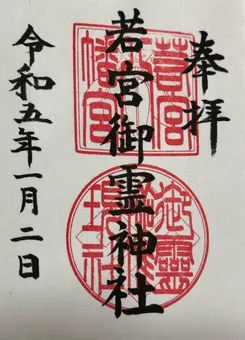 奉拝
若宮御霊神社
令和五年一月二日